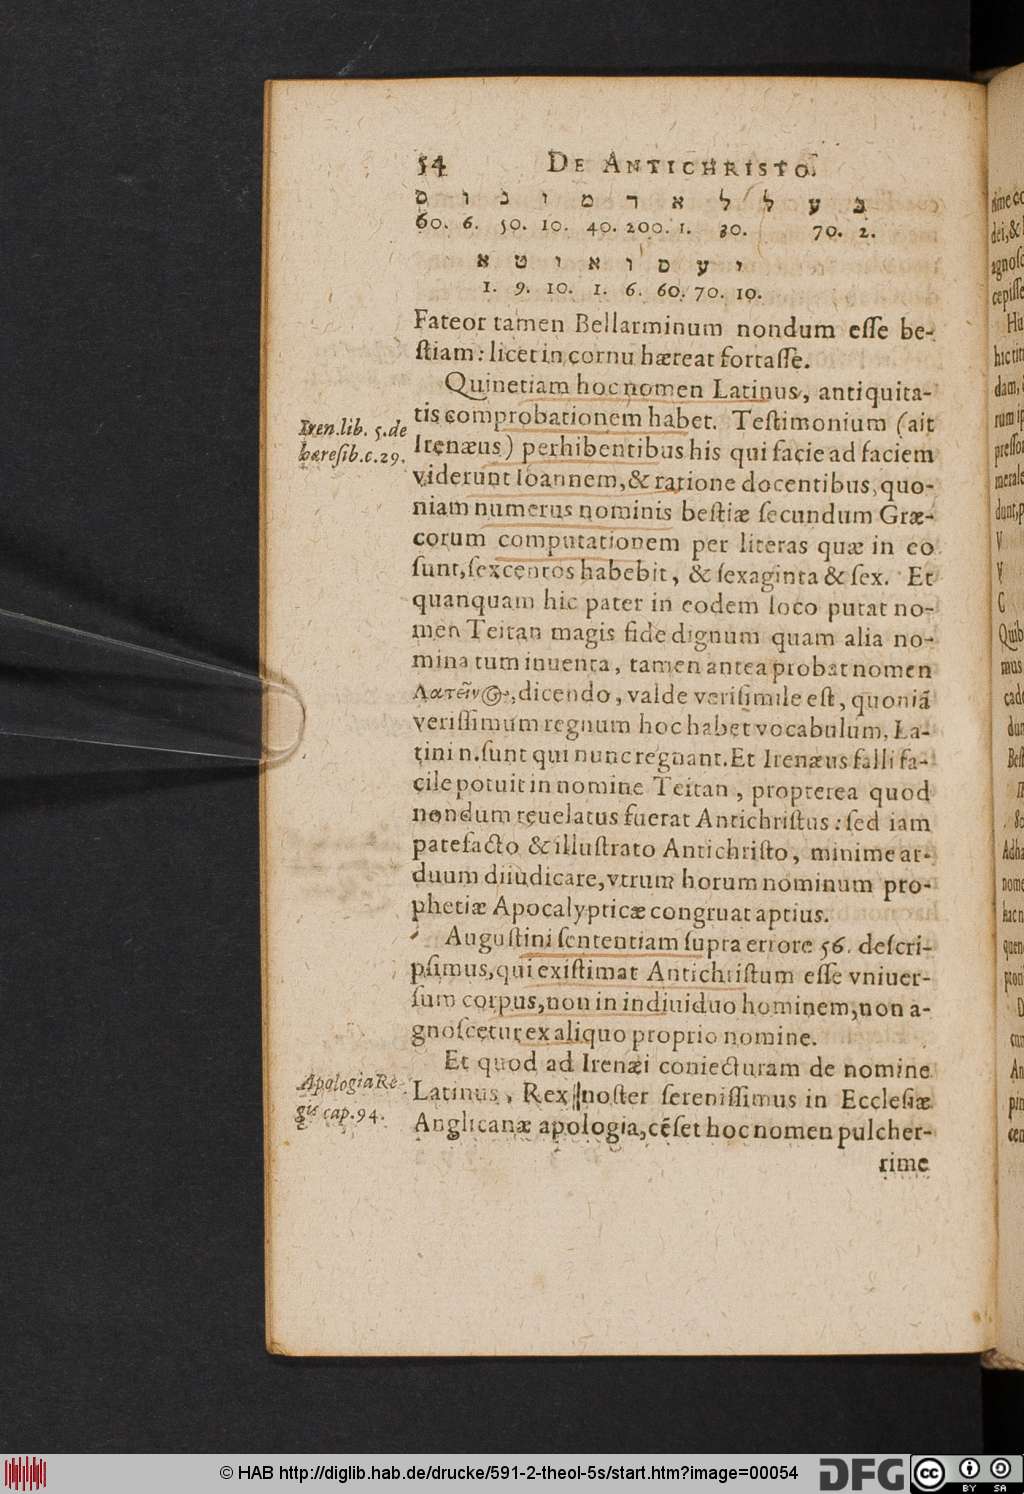 54 DE ANTICHRISTO.
ס ו נ י מ ר א ל ל ע ב
60. 6. 50. 10. 40. 200. 1. 30. 70. 2.
א ט י א ו ס ע י
1. 9. 10. 1. 6. 60. 70. 10.
Fateor tamen Bellarminum nondum esse be-
stiam: licet in cornu hæreat fortasse.
Quinetiam hoc nomen Latinus, antiquita-
tis comprobationem habet. Testimonium (ait
Iren. lib. 5. de
hæresib. c. 29.
Irenæus) perhibentibus his qui facie ad faciem
viderunt Ioannem, & ratione docentibus, quo-
niam numerus nominis bestiæ secundum Græ-
corum computationem per literas quæ in eo
sunt, sexcentos habebit, & sexaginta & sex. Et
quanquam hic pater in eodem loco putat no-
men Teitan magis fide dignum quam alia no-
mina tum inuenta, tamen antea probat nomen
Λατεῖνος, dicendo, valde verisimile est, quoniã
verissimum regnum hoc habet vocabulum. La-
tini n. sunt qui nunc regnant. Et Irenæus falli fa-
cile potuit in nomine Teitan, propterea quod
nondum reuelatus fuerat Antichristus: sed iam
patefacto & illustrato Antichristo, minime ar-
duum diiudicare, vtrum horum nominum pro-
phetiæ Apocalypticæ congruat aptius.
Augustini sententiam supra errore 56. descri-
psimus, qui existimat Antichristum esse vniuer-
sum corpus, non in indiuiduo hominem, non a-
gnoscetur ex aliquo proprio nomine.
Et quod ad Irenæi coniecturam de nomine
Apologia Re-
gis cap. 94.
Latinus, Rex noster serenissimus in Ecclesiæ
Anglicanæ apologia, cẽset hoc nomen pulcher-
rime
© HAB http://diglib.hab.de/drucke/591-2-theol-5s/start.htm?image=00054
DFG
cc BY SA